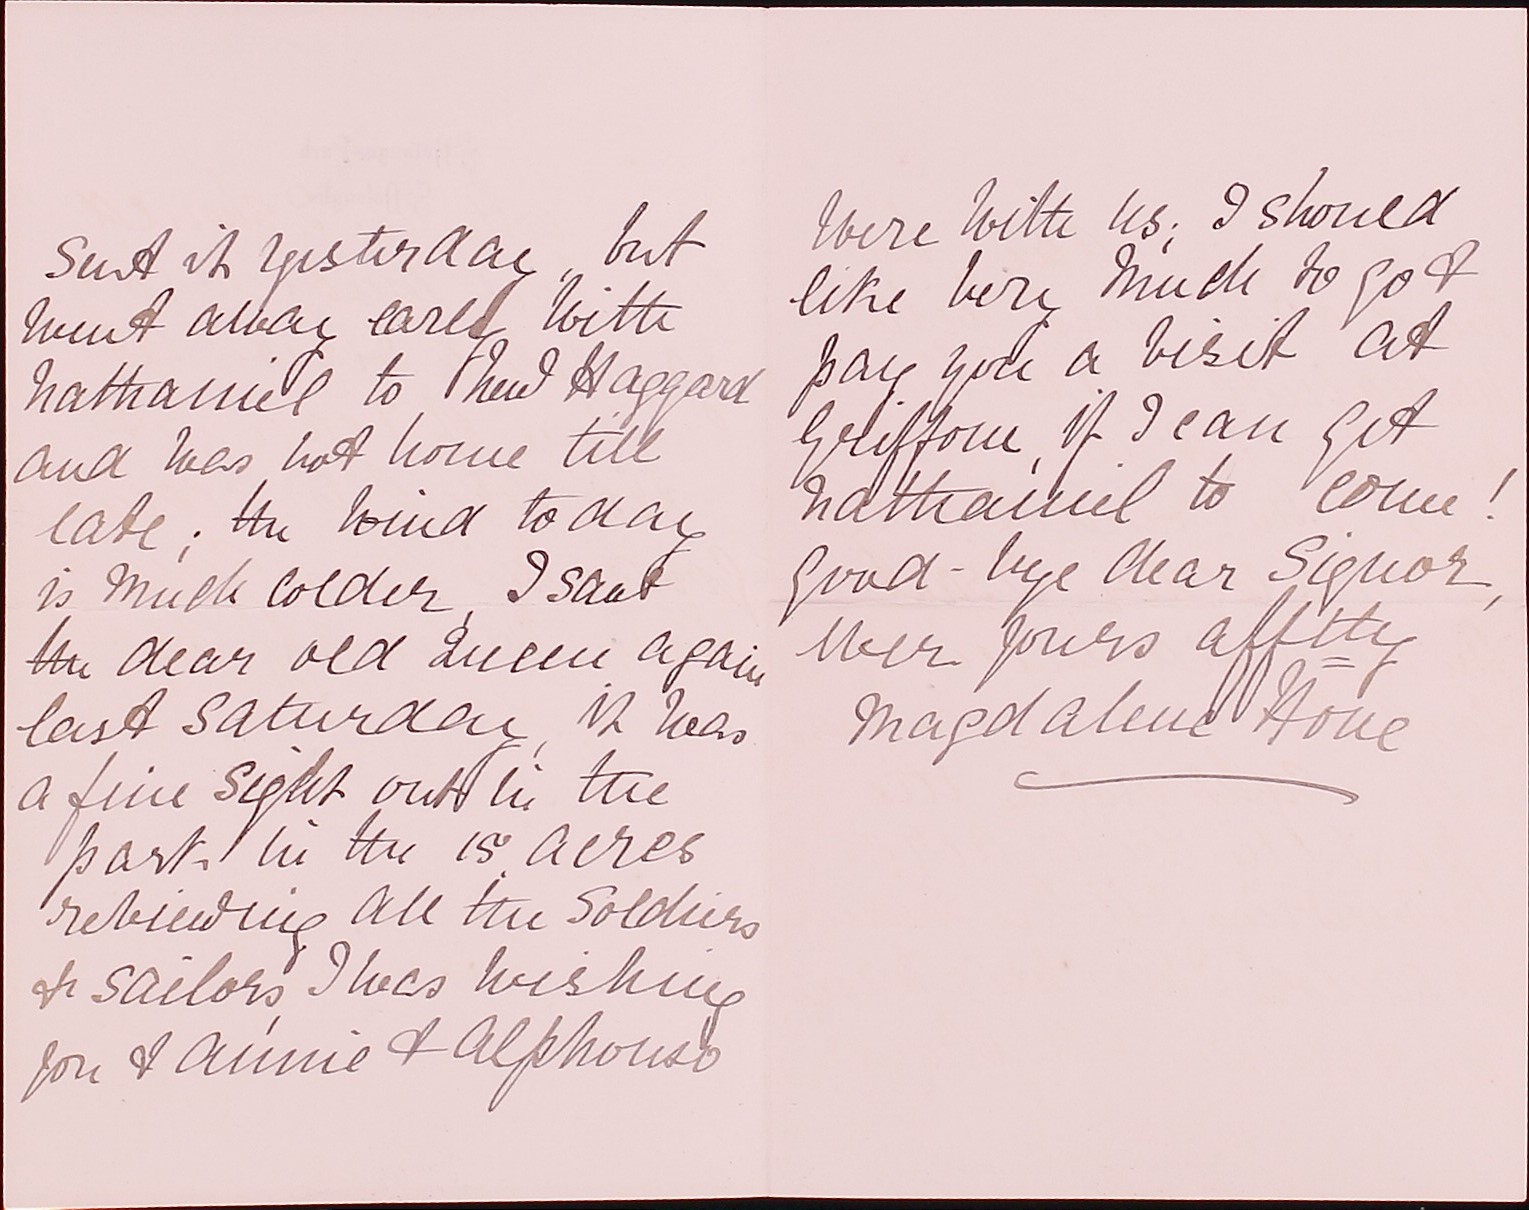 sent it yesterday, but
went away early with
Nathaniel to New Haggard
and was not home till
late; the wind today
is much colder, I saw
the dear old Queen again
last Saturday, it was
a fine sight out in the
park in the 15 acres
reviewing all the soldiers
& sailors, I was wishing
you & Annie & Alphonso
were with us; I should
like very much to go &
pay you a visit at
if I can get
Nathaniel to come!
Good-bye dear Signor,
ever yours afftly
Magdalene Hone